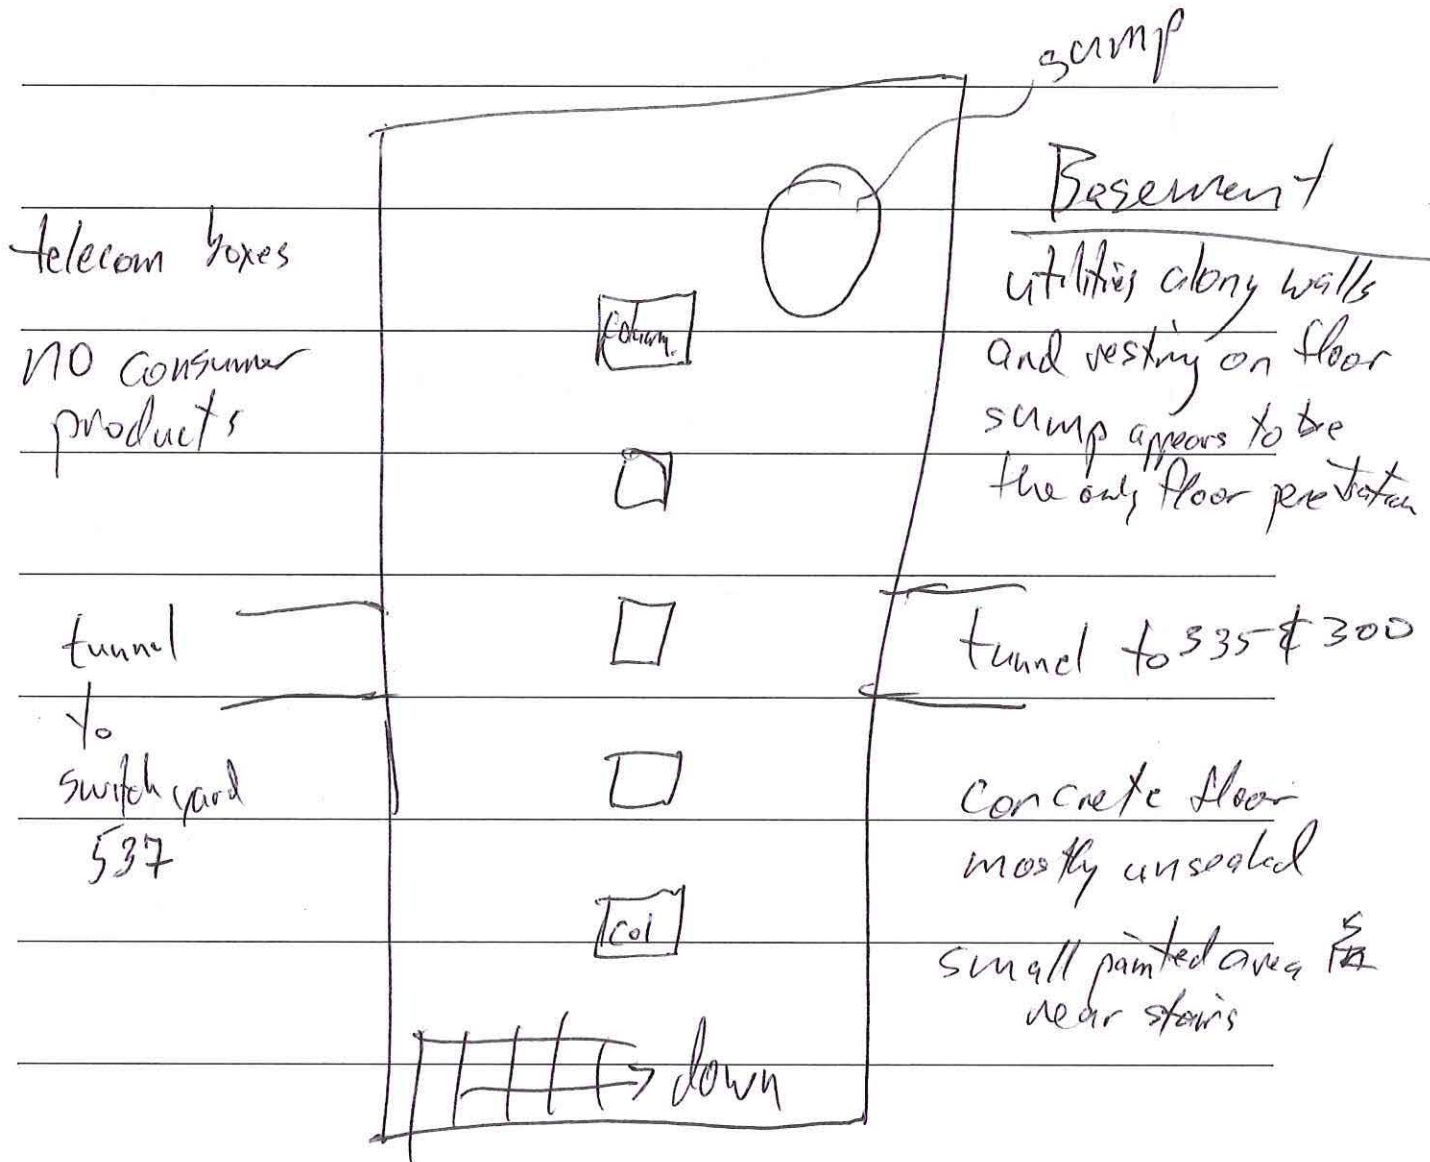 sump
Basement
utilities along walls
and resting on floor
sump appears to be
the only floor penetration
telecom boxes
no consumer
products
Column.
tunnel
to
switch yard
537
tunnel to 335 & 300
concrete floor
mostly unsealed
small painted area
near stairs
Col
down